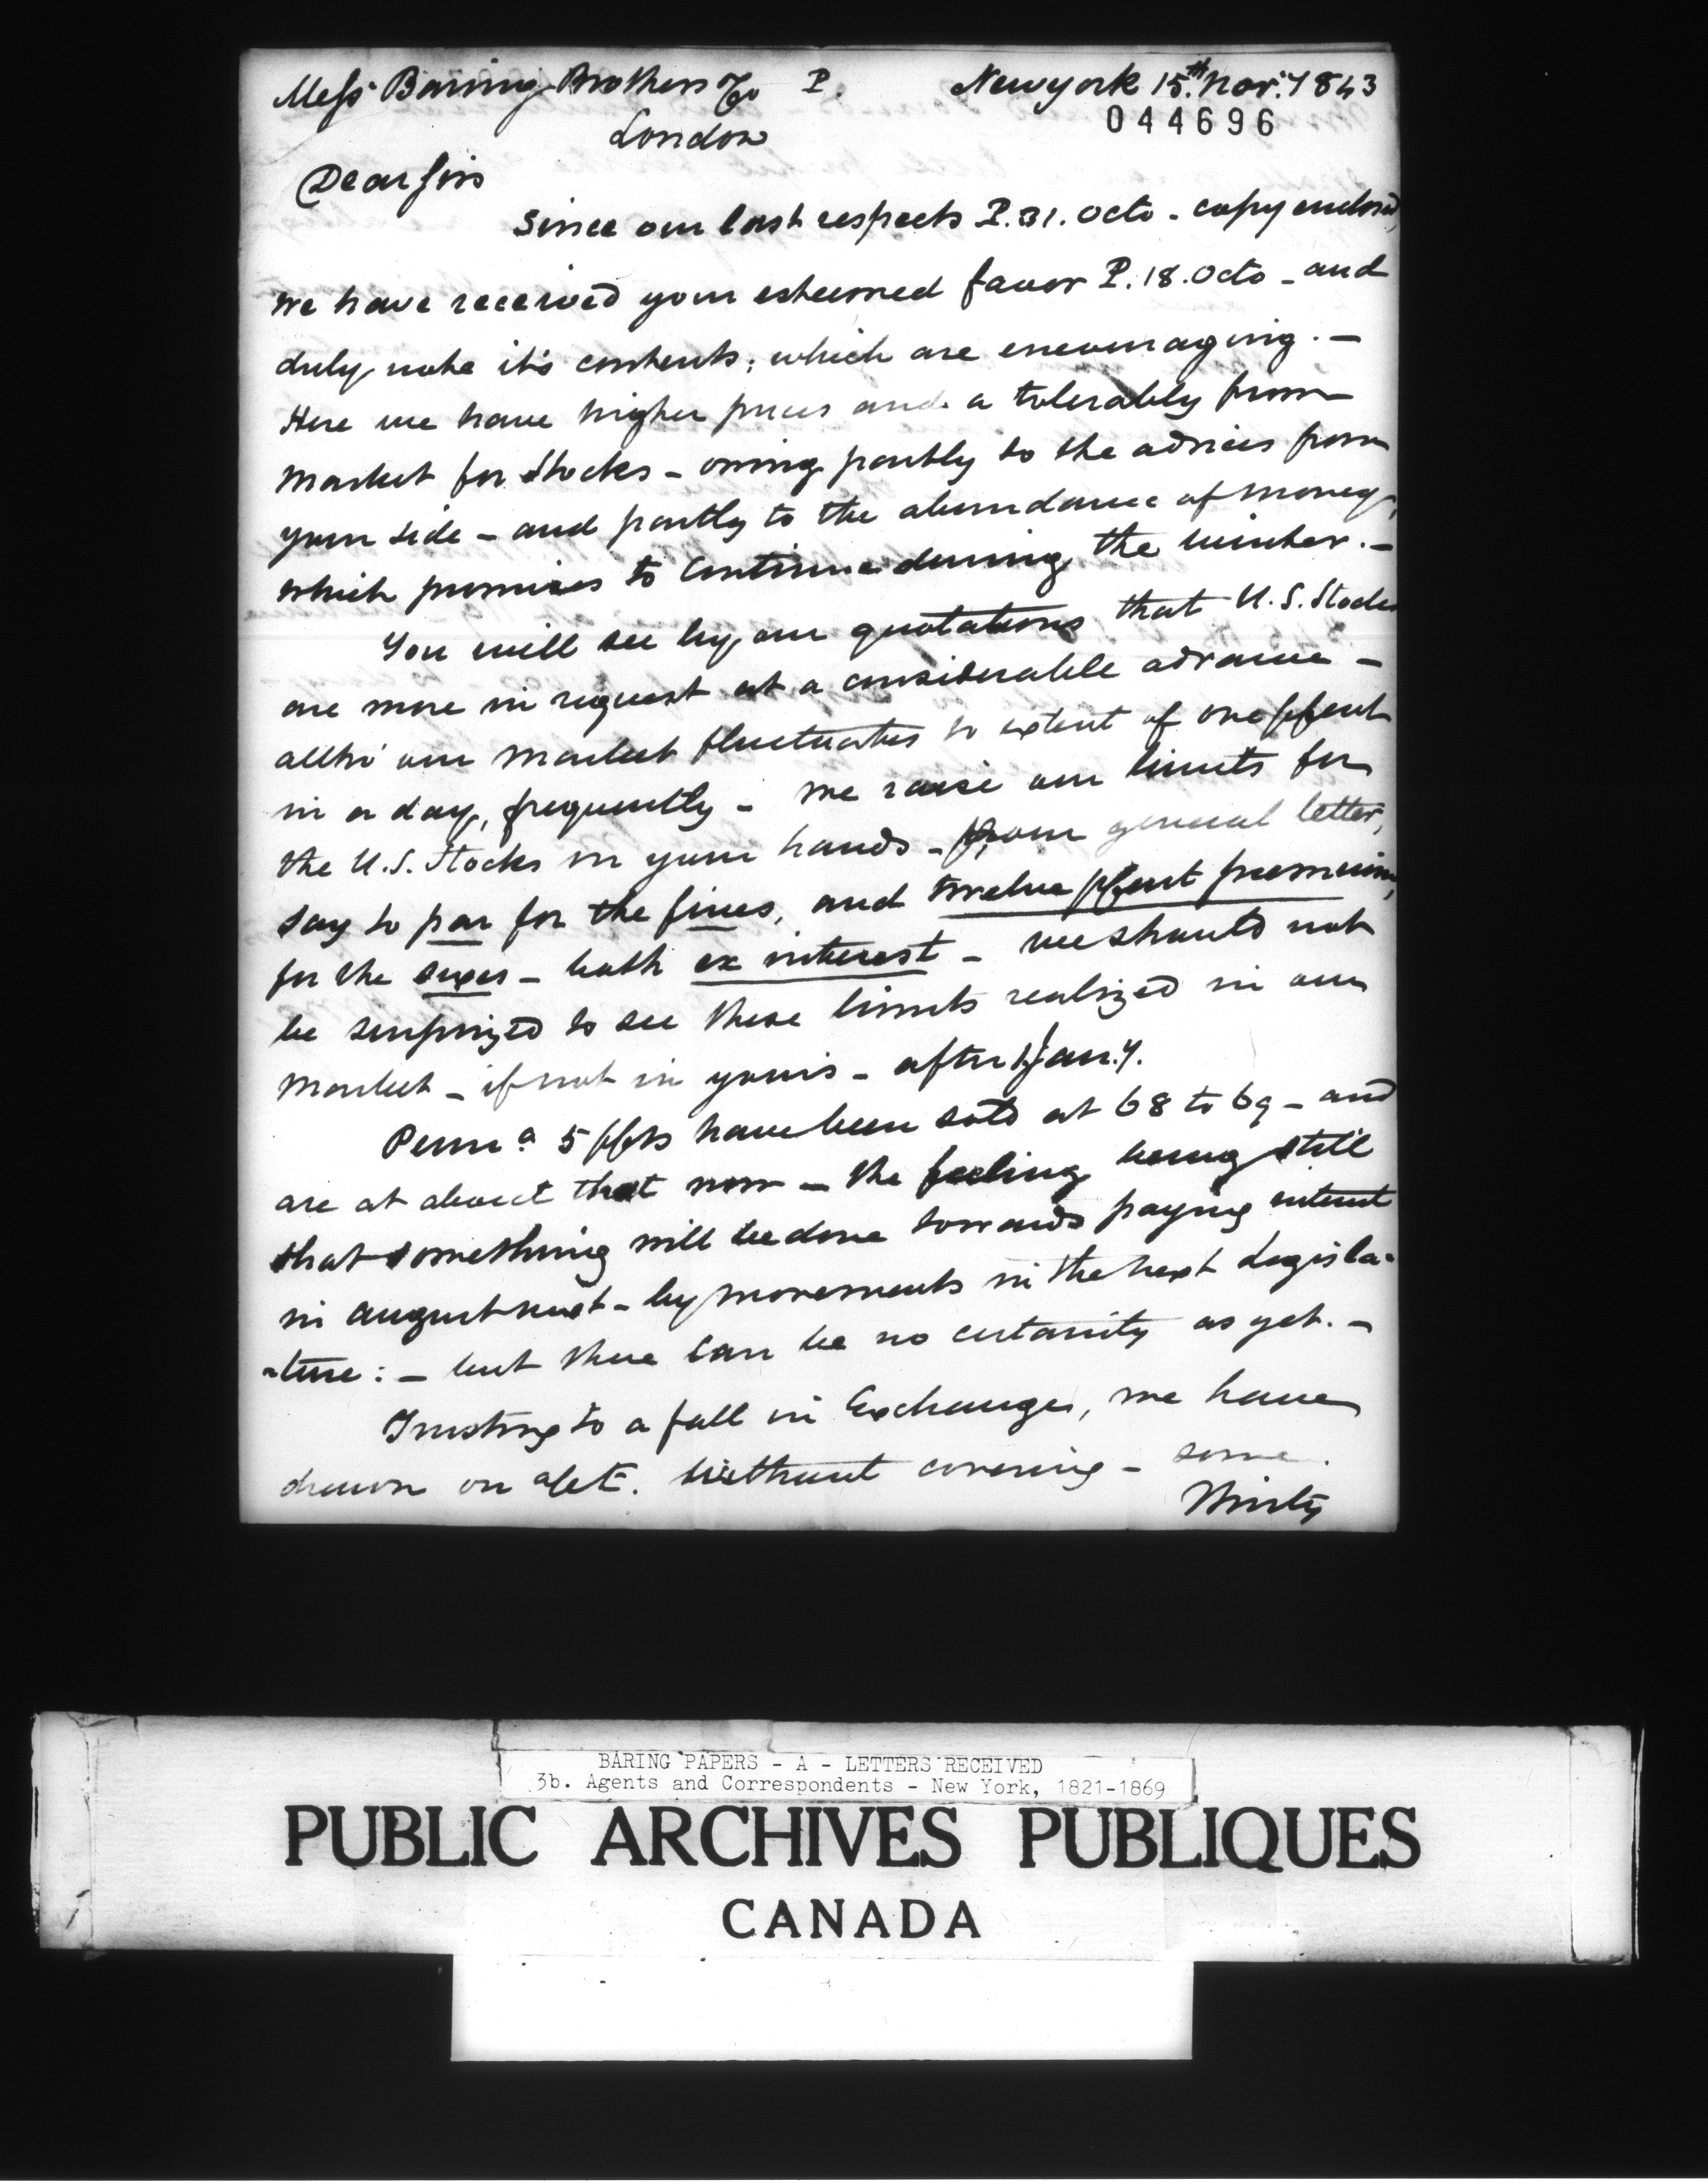 Messrs Baring Brothers & Co P. New york 15.th Nov. 1843
044696
London
Dear Sirs
Since our last respects P. 31. Octo - copy enclosed,
we have received your esteemed favor P. 18. Octo - and
duly note it's contents; which are encouraging. -
Here we have higher prices and a tolerably firm
market for Stocks - owing partly to the advices from
your side - and partly to the abundance of money,
which promises to continue during the winter. -
You will see by our quotations that U.S. Stocks
are more in request at a considerable advance -
altho' our market fluctuates to extent of one p Cent
in a day, frequently - We raise our limits for
the U.S. Stocks in your hands - P. our general letter,
say to par for the fives, and twelve p Cent premium,
for the sixes - both ex interest - We should not
be surprized to see these limits realized in our
market - if not in yours - after 1 Jany.
Penna. 5 p Cts have been sold at 68 to 69 - and
are at about that now - the feeling being still
that something will be done towards paying interest
in August next - by movements in the next Legisla-
-ture: - but there can be no certainty as yet. -
Trusting to a fall in Exchanges, we have
drawn on a/c E. without covering - some
Thirty
BARING PAPERS - A - LETTERS RECEIVED
3b. Agents and Correspondents - New York, 1821-1869
PUBLIC ARCHIVES PUBLIQUES
CANADA